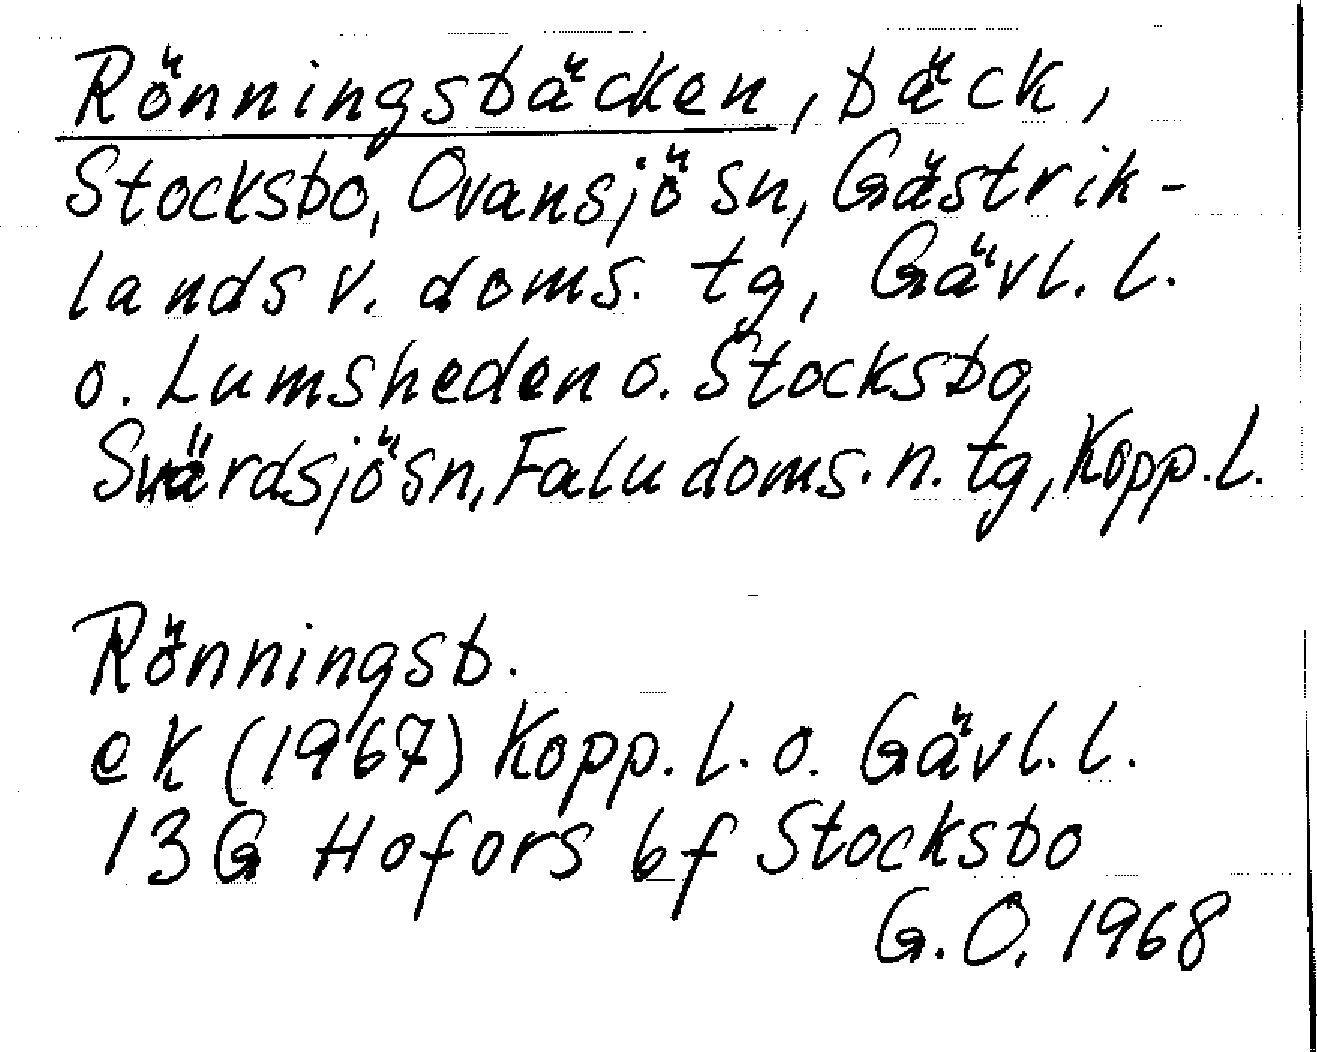 Rönningsbäcken, bäck,
Stocksbo, Ovansjö sn, Gästrik-
lands v. doms. tg, Gävl. l.
o. Lumsheden o. Stocksbo,
Svärdsjö sn, Falu doms. n. tg, Kopp. l.
Rönningsb.
ek (1967) Kopp. l. o. Gävl. l.
13G Hofors 6f Stocksbo
G.O. 1968